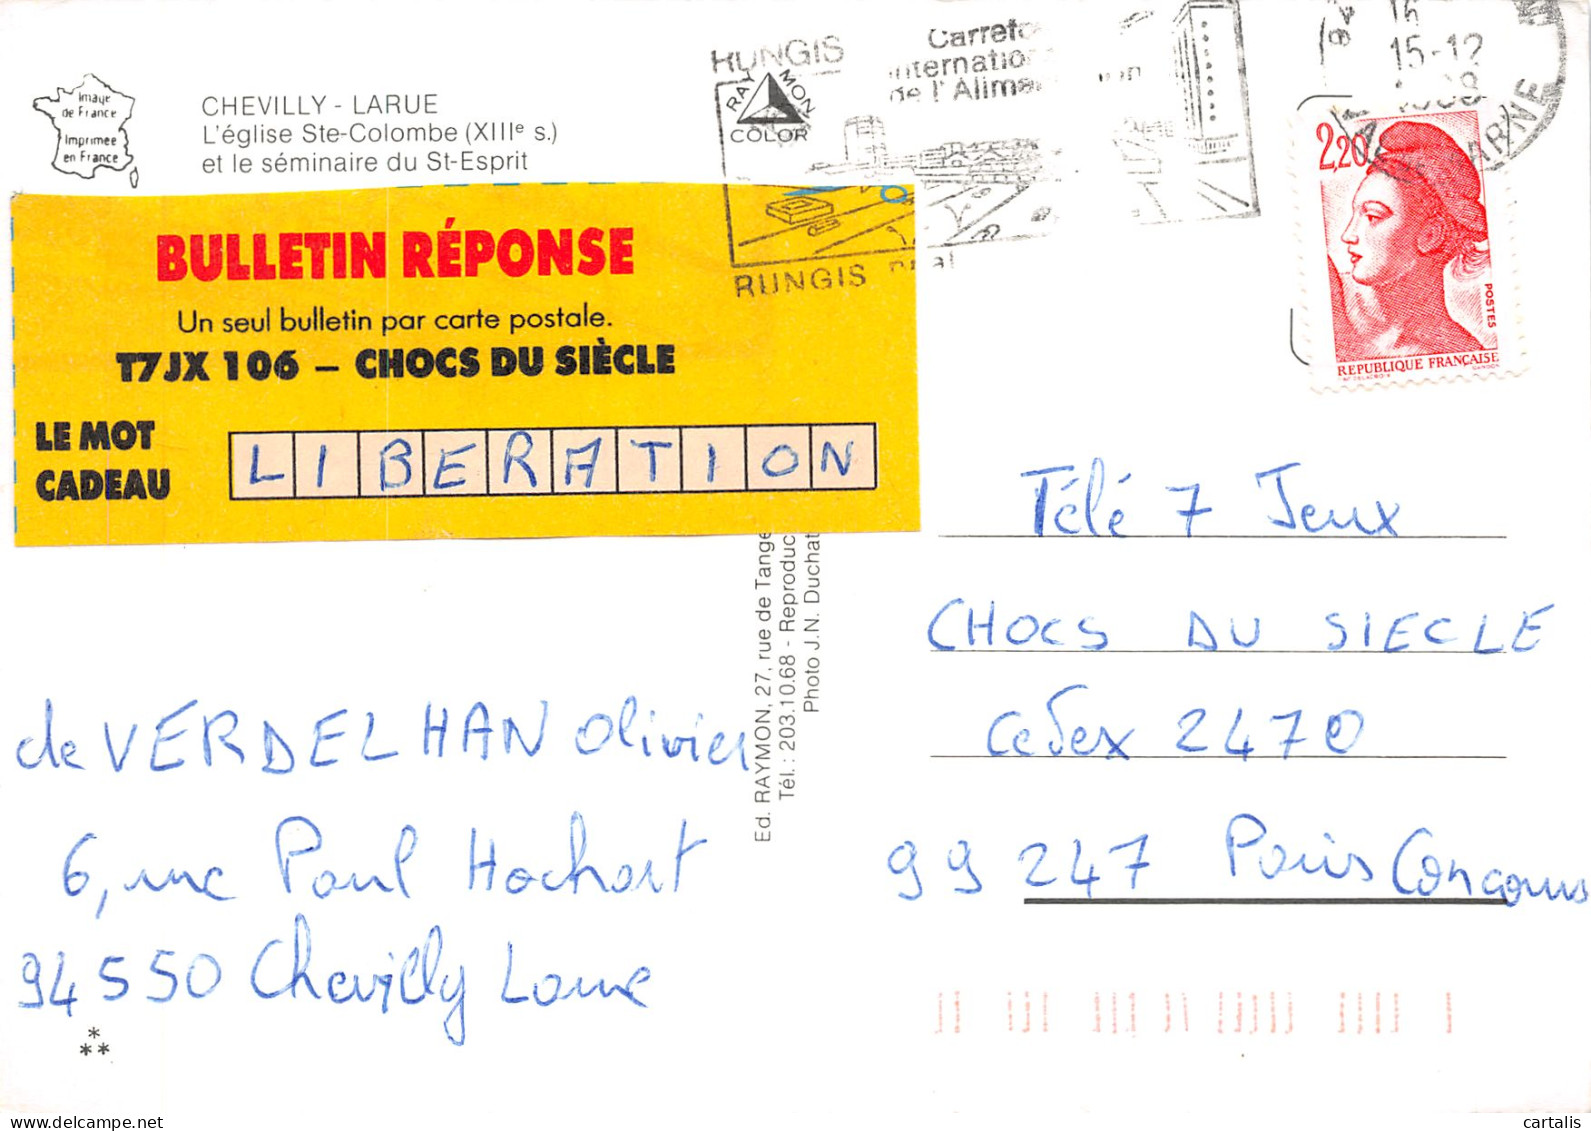 Image
de France
Imprimée
en France
CHEVILLY - LARUE
L'église Ste-Colombe (XIIIe s.)
et le séminaire du St-Esprit
RUNGIS
RAYMON
COLOR
Carrefo
internation
de l'Alimen
RUNGIS
15-12
MARNE
2,20
POSTES
REPUBLIQUE FRANÇAISE
BULLETIN RÉPONSE
Un seul bulletin par carte postale.
T7JX 106 – CHOCS DU SIÈCLE
LE MOT
CADEAU
LIBERATION
Ed. RAYMON, 27, rue de Tange
Tél.: 203.10.68 - Reproduc
Photo J.N. Duchat
Télé 7 Jeux
CHOCS DU SIECLE
Cedex 2470
99 247 Paris Concours
de VERDELHAN Olivier
6, rue Paul Hochart
94550 Chevilly Larue
*
**
cartalis
delcampe.net